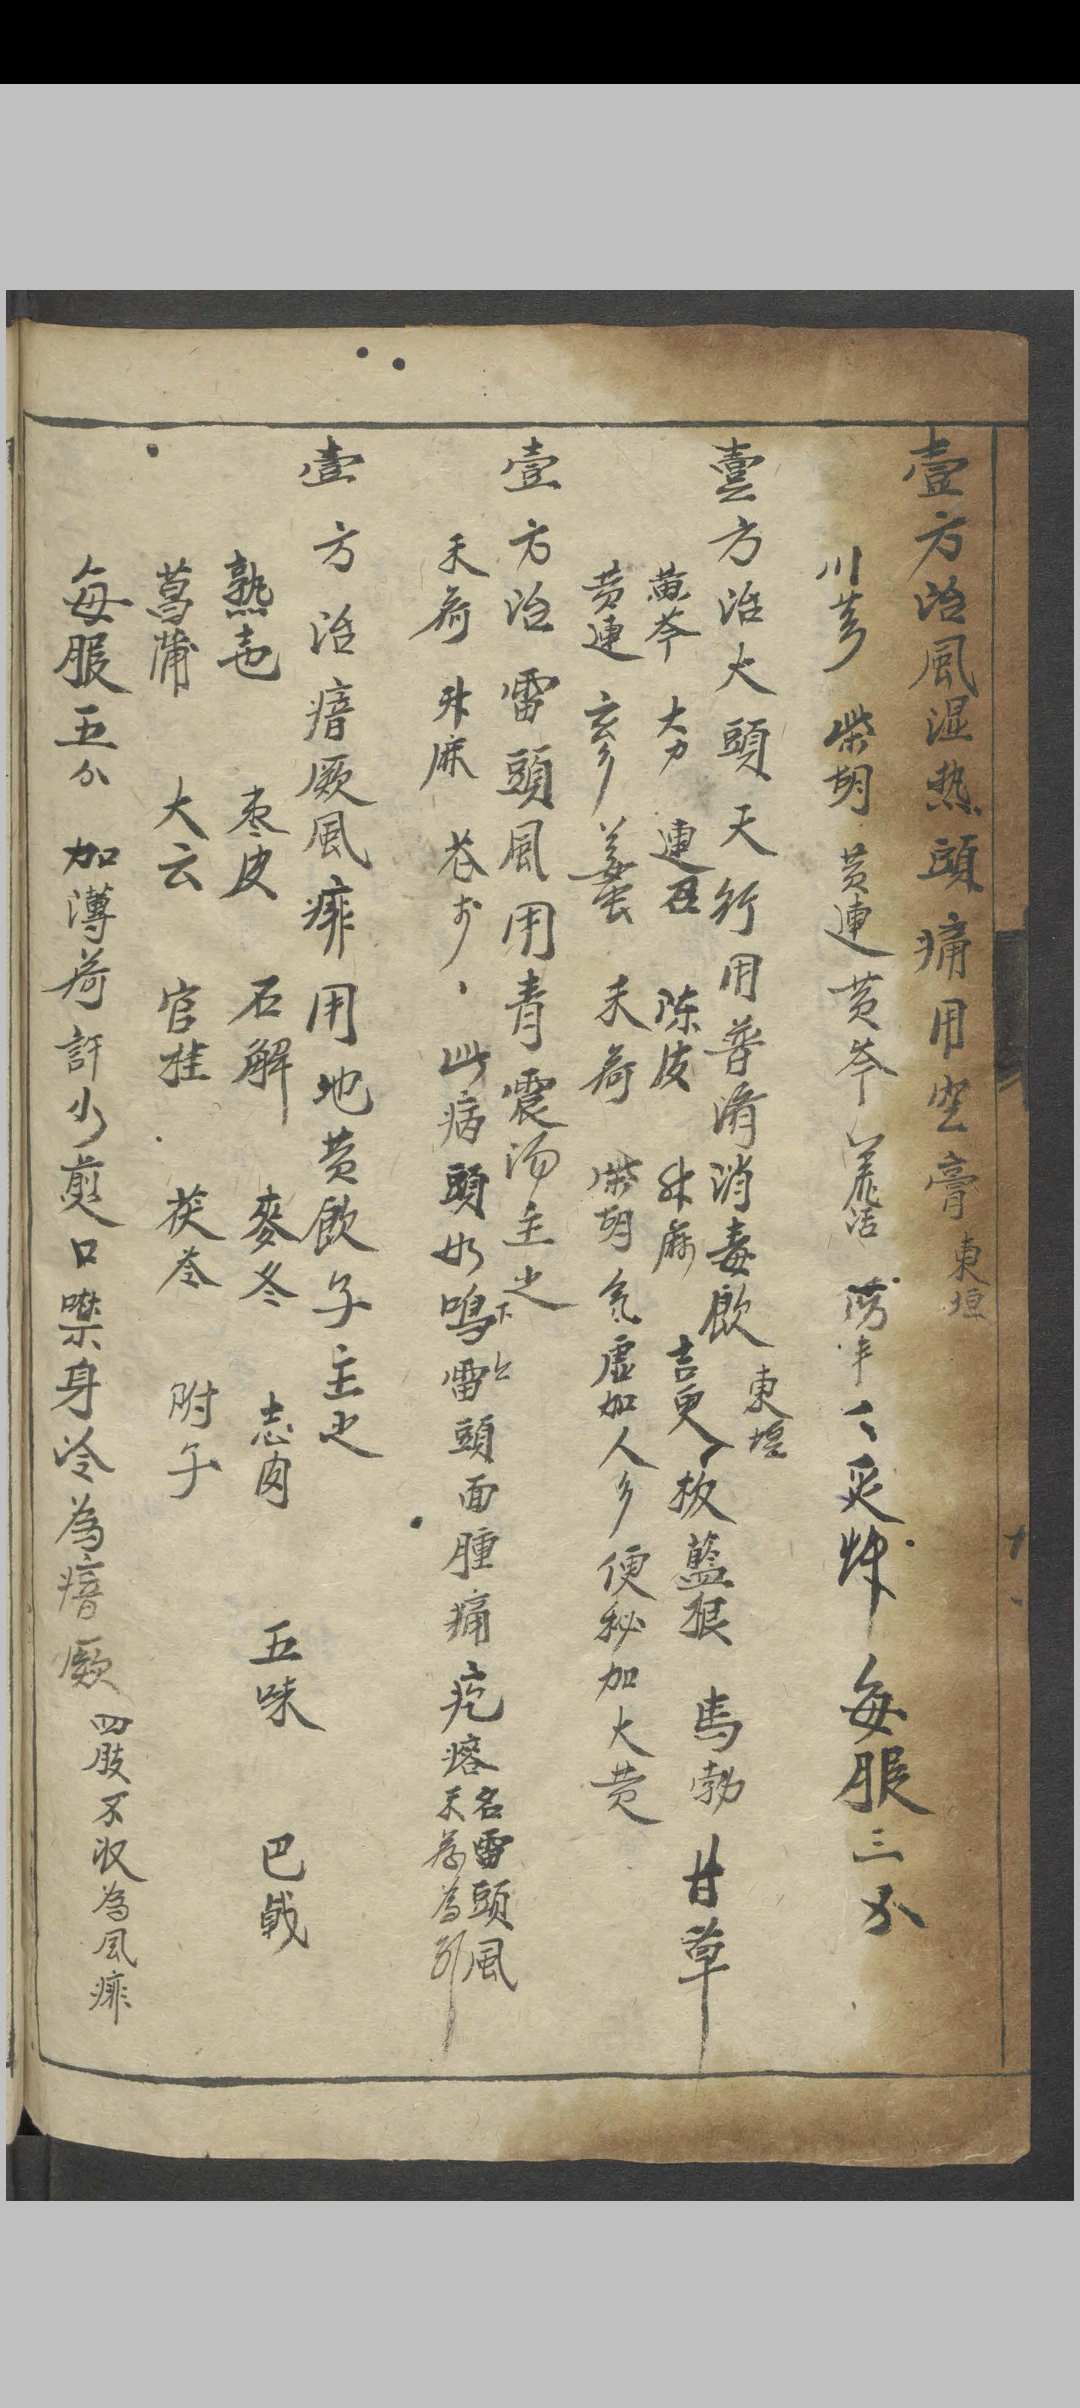 壹方治風湿热頭痛用空膏 東垣
川芎 柴胡 黄連 黄芩 羌活 防半 每服三分
壹方治大頭天行用普濟消毒飲 東垣
黄芩 大力 連召 陈皮 升麻 吉更 板藍根 馬勃 甘草
黄連 玄参 姜蚕 禾荷 柴胡 氣虚加人参 便秘加大黄
壹方治雷頭風用青震湯主之
禾荷 升麻 苍朮 此病頭如鳴雷頭面腫痛疙瘩 名雷頭風 禾荷為引
下 上
壹方治瘖厥風痱用地黄飲子主之
熟地 枣皮 石解 麥冬 志肉 五味 巴戟
菖蒲 大云 官桂 茯苓 附子
每服五分 加薄荷許少煎 口噤身冷為瘖厥 四肢不收為風痱